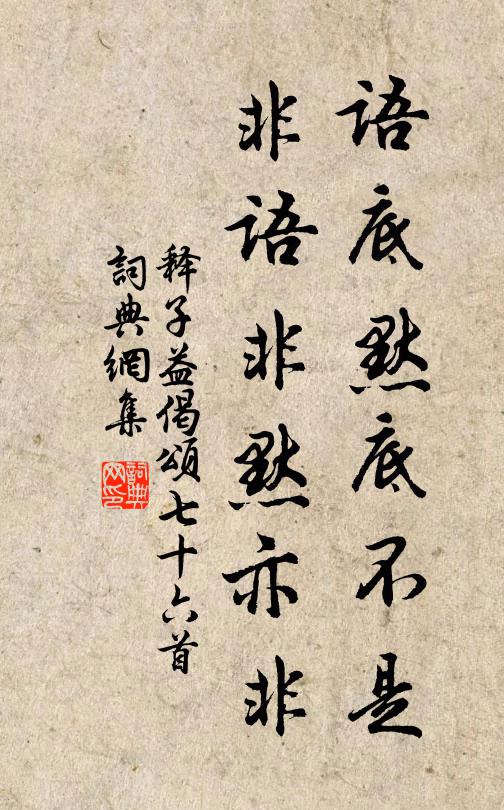 語底默底不是
非語非默亦非
释子益偈頌七十六首
詞典網集
詞典
网印